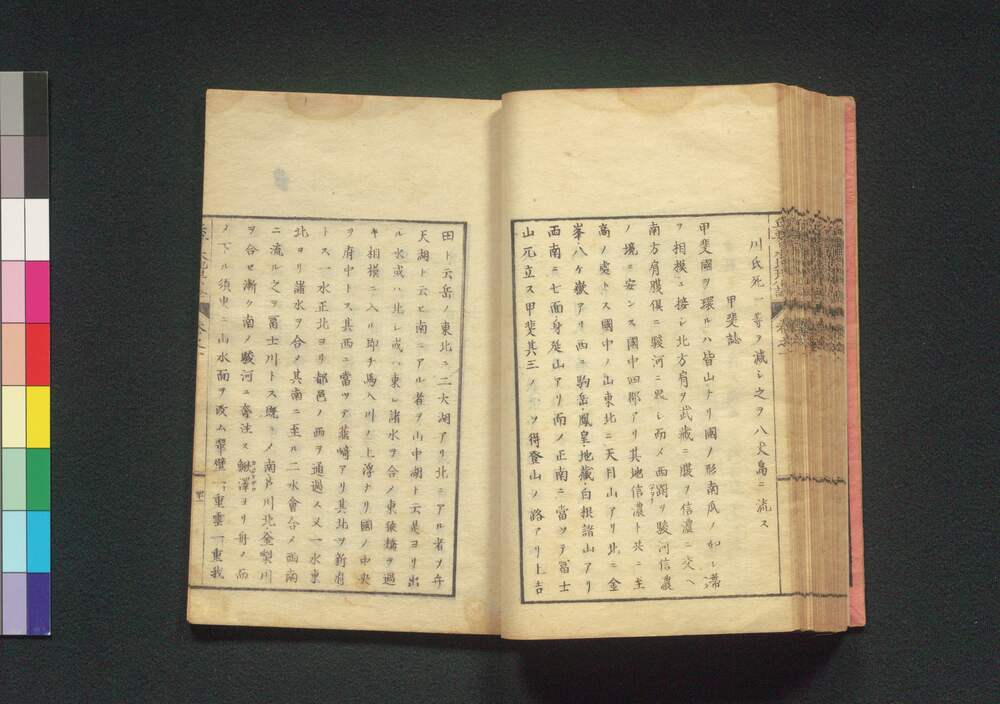 川氏死一等ヲ減シ之ヲ八丈島ニ流ス
甲斐誌
甲斐國ヲ環ルハ皆山ナリ國ノ形南瓜ノ如シ
ヲ相模ニ接シ北方肩ヲ武藏ニ膜ヲ信濃ニ交ヘ
南方肩膜倶ニ駿河ニ
ノ境ニ安ンス國中四郡アリ其地信濃ト共ニ至
高ノ處トス國中ノ山東北ニ天目山アリ北ニ金
峯八ヶ嶽アリ西ニ駒岳鳳皇地藏白根諸山アリ
西南ニ七面身延山アリ而ノ正南ニ當ツテ冨士
山兀立ス甲斐其三ノ一ヲ得登山ノ路アリ上吉
田ト云岳ノ東北ニ二大湖アリ北ニアル者ヲ
天湖ト云ヒ南ニアル者ヲ山中湖ト云是ヨリ出
ル水或ハ北シ或ハ東シ諸水ヲ合メ東猿橋ヲ過
キ相摸ニ入ル即チ馬入川ノ上浮ナリ國ノ中央
ヲ府中トス其西ニ當ツテ韮崎アリ其北ヲ新府
トス一水正北ヨリ都邑ノ西ヲ通過ス又一水東
北ヨリ諸水ヲ合メ其南ニ至ル二水會合メ西南
ニ流ル之ヲ冨士川トス既ニノ南芦川北金梨川
ヲ合セ漸ク南ノ駿河ニ奔注ス鰍澤ヨリ舟ノ而
ノ下ル須臾ニ山水面ヲ改ム翠壁一重雲一重我